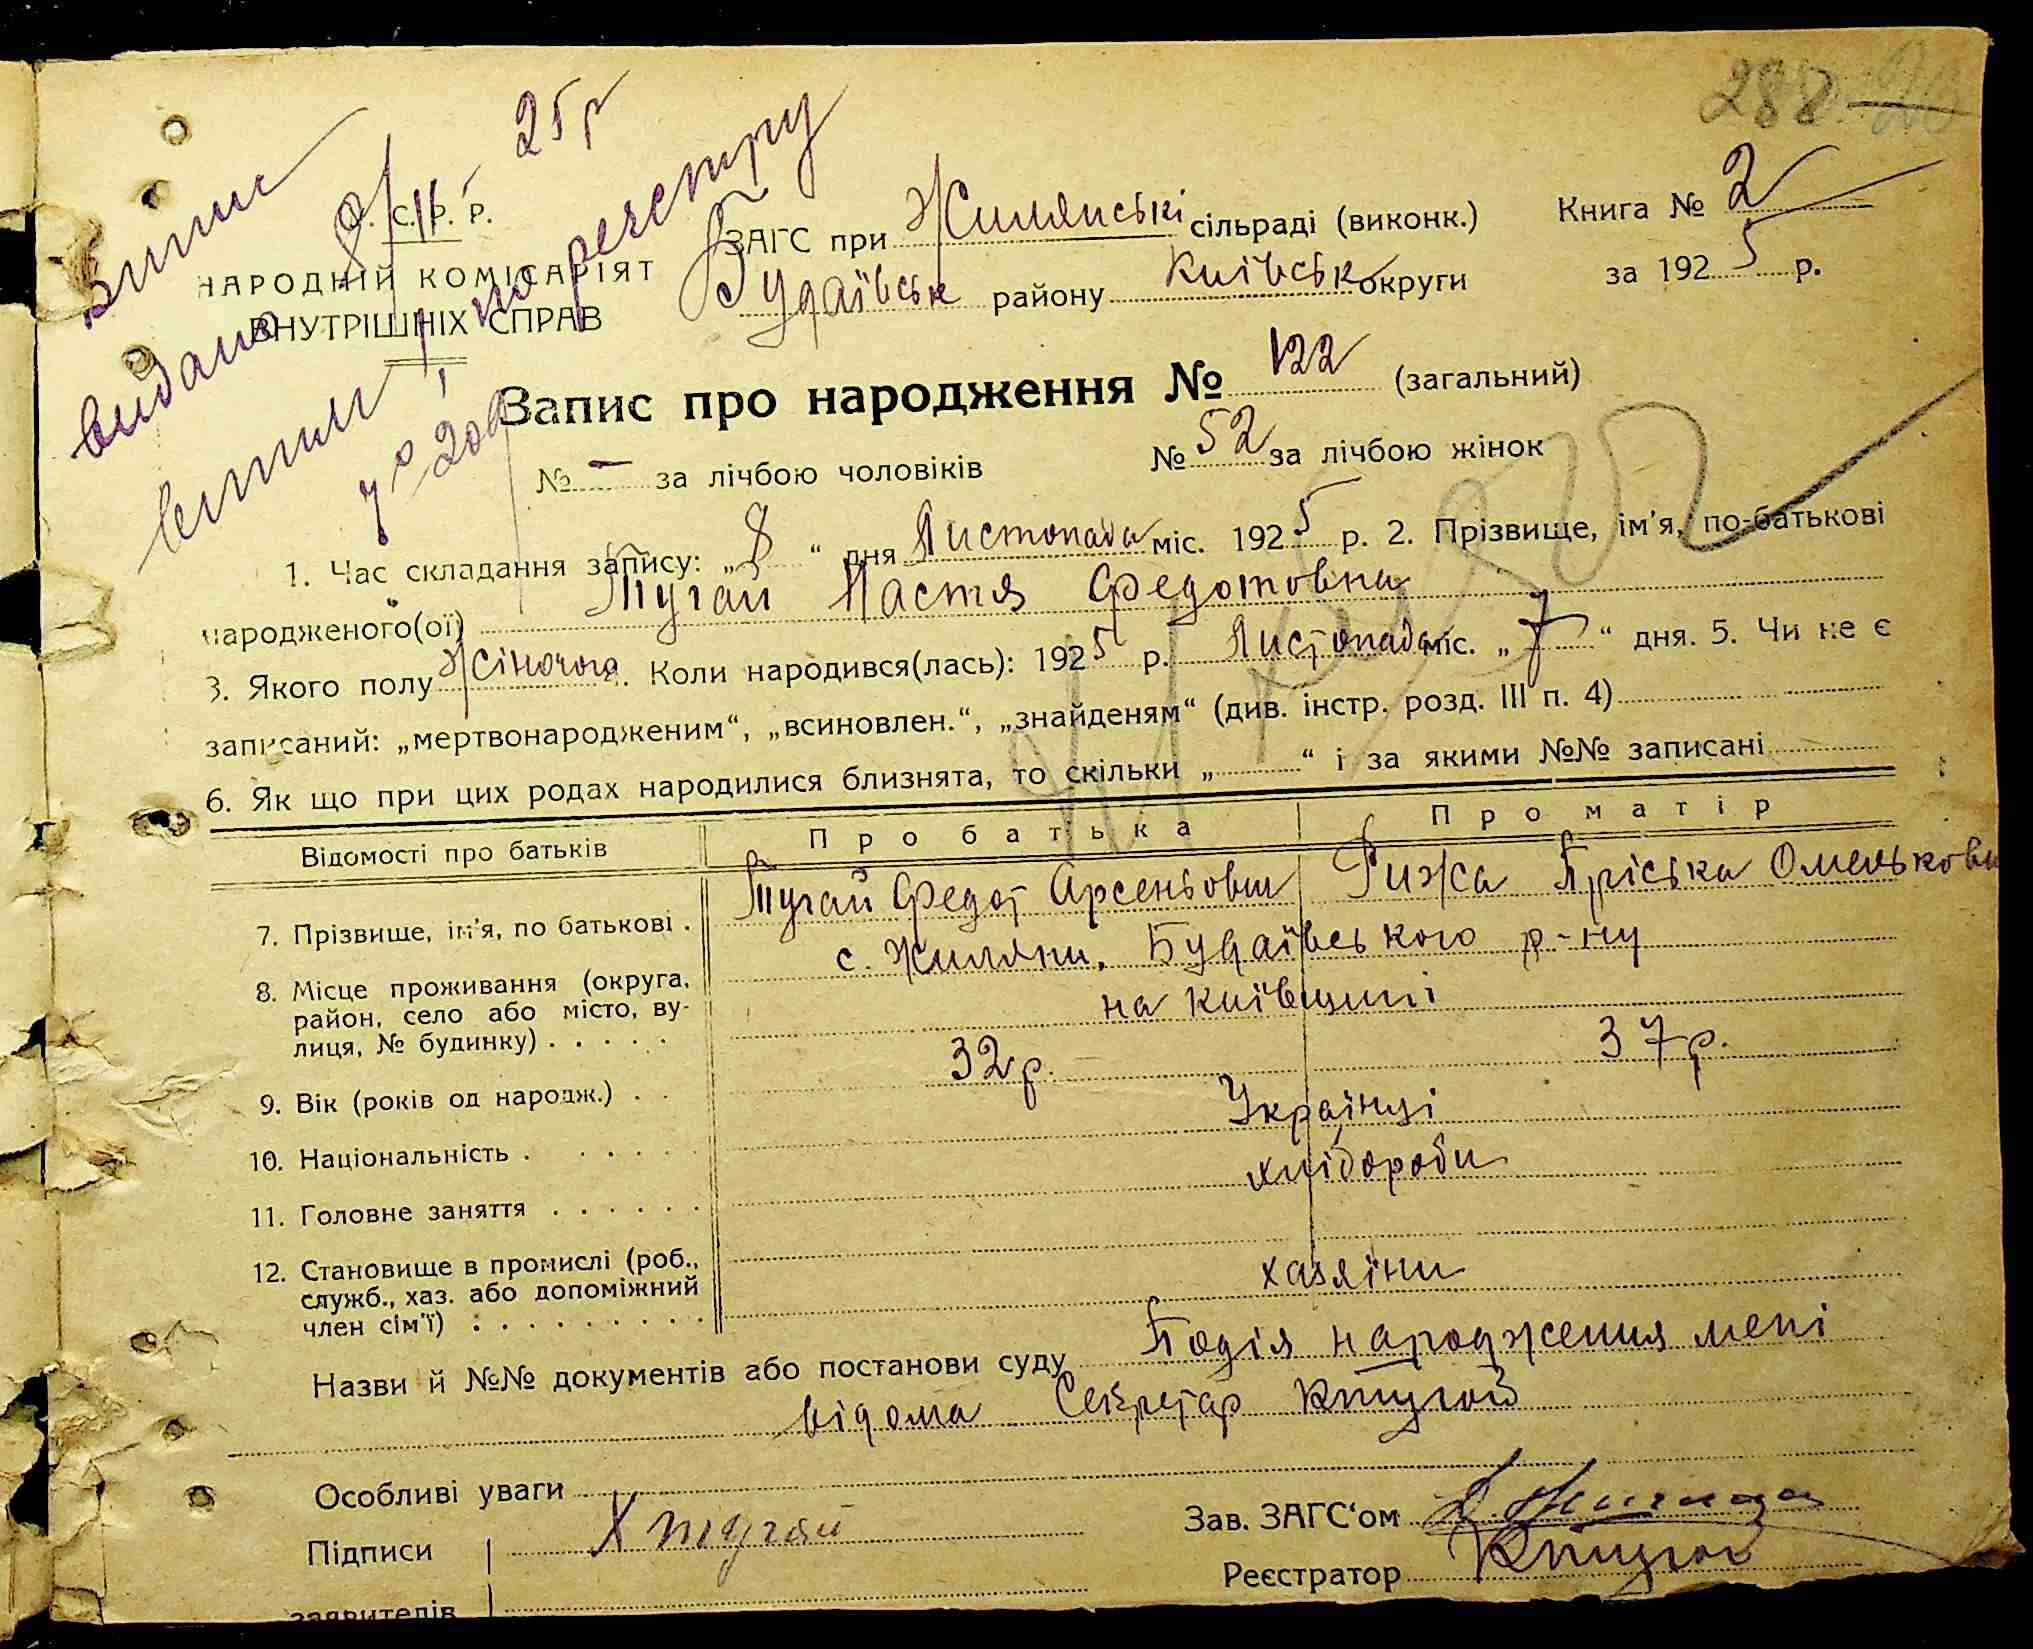 288
Випис
видано 8/11 25 р
по реєстру
С. Р. Р.
НАРОДНІЙ КОМІСАРІЯТ
ВНУТРІШНІХ СПРАВ
ЗАГС при Жилянські сільраді (виконк.)
Будаївськ району Київськ округи
Книга № 2
за 1925 р.
Запис про народження № 122 (загальний)
№ — за лічбою чоловіків № 52 за лічбою жінок
1. Час складання запису: „8“ дня Листопада міс. 1925 р. 2. Прізвище, ім'я, по-батькові
народженого(ої) Тугай Настя Федотовна
3. Якого полу жіночого. Коли народився(лась): 1925 р. Листопада міс. „7“ дня. 5. Чи не є
записаний: „мертвонародженим“, „всиновлен.“, „знайденям“ (див. інстр. розд. III п. 4)
6. Як що при цих родах народилися близнята, то скільки „ “ і за якими №№ записані
Відомості про батьків Про батька Про матір
7. Прізвище, ім'я, по батькові . Тугай Федот Арсеньович Рижа Пріська Омельковн
8. Місце проживання (округа, район, село або місто, вулиця, № будинку) . . . . . с. Жиляни, Будаївського р-ну
на Київщині
9. Вік (років од народж.) . . 32 р. 37 р.
10. Національність . . . . . . Українці
11. Головне заняття . . . . . . хлібороби
12. Становище в промислі (роб., служб., хаз. або допоміжний член сім'ї) : . . . . . . . . хазяїни
Назви й №№ документів або постанови суду Подія народження мені
відома Секретар Ктугай
Особливі уваги
Підписи Х тугай
заявителів
Зав. ЗАГС'ом
Реєстратор Ктугай